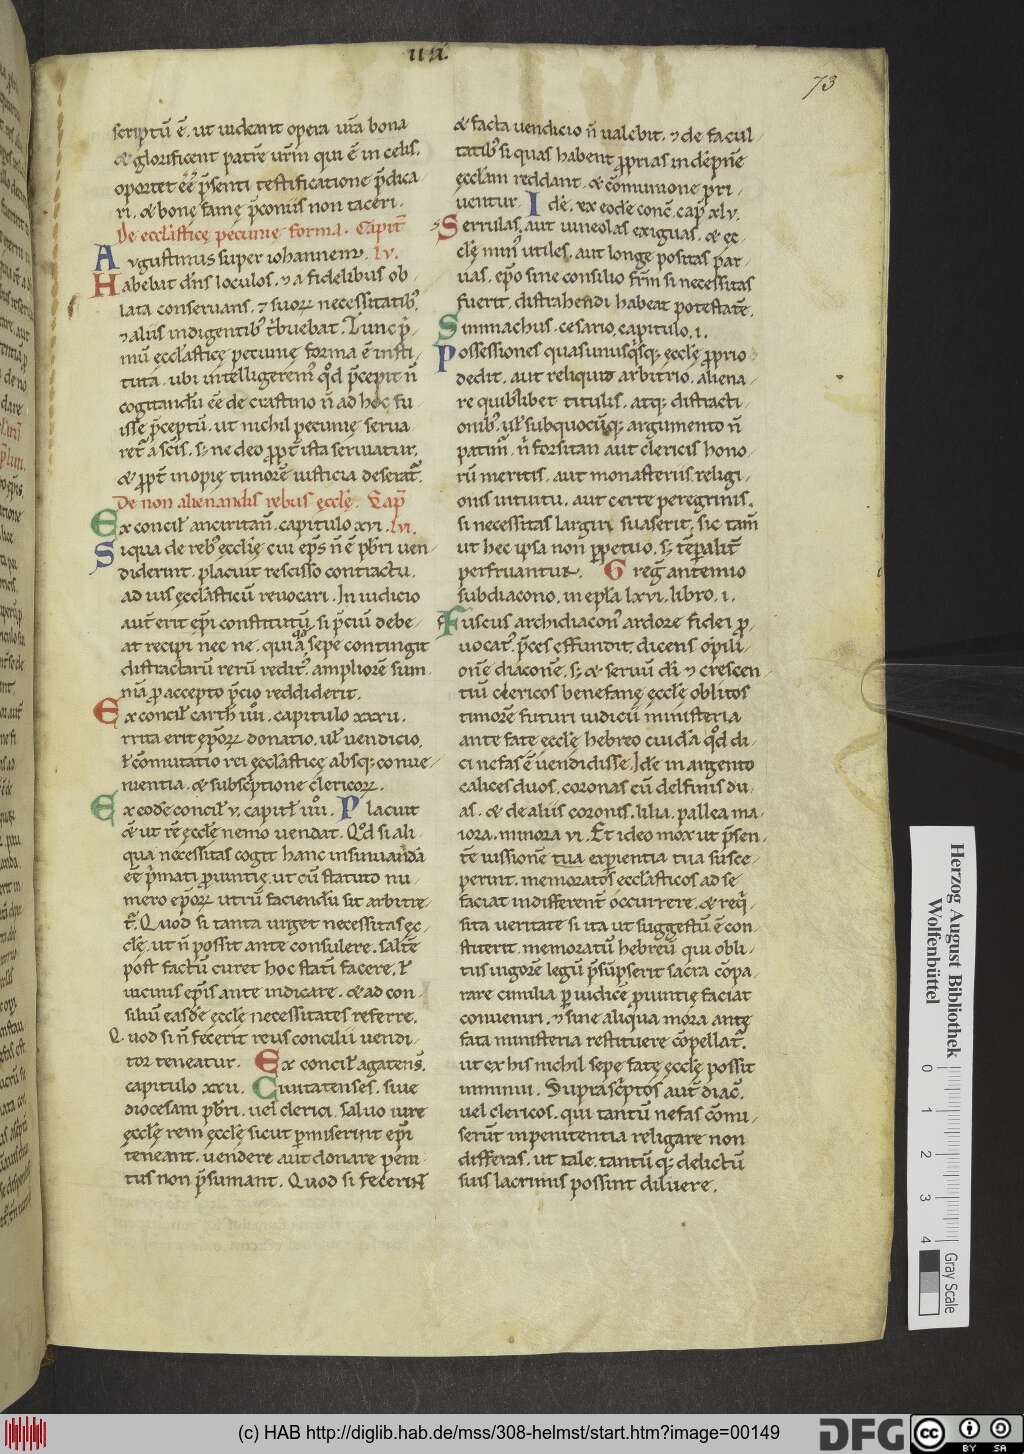 UII.
73
scriptũ ẽ. ut uideant opera ur̃a bona
& glorificent patrẽ ur̃m qui ẽ in celis.
oportet eẽ p̃senti testificatione p̃dica
ri. & bonę famę p̃coniis non taceri.
De eccl̃asticę pecunię forma. Capit̃
Augustinus super iohannem. lv.
Habebat dñs loculos. ⁊ a fidelibus ob
lata conseruans. ⁊ suoꝝ necessitatibꝰ
⁊ aliis indigentibꝰ t̃buebat. Tunc p̃
mũ eccl̃asticę pecunię forma ẽ insti
tuta. ubi intelligeremꝰ qđ p̃cepit ñ
cogitandũ eẽ de crastino ñ ad hoc fu
isse p̃ceptũ. ut nichil pecunię serua
ret̃ a sc̃is. s; ne deo ꝓpt̃ ista seruiatur.
& ꝓpt̃ inopię timorẽ iusticia deserat̃.
De non alienandis rebus ęccl̃ę. Cap̃
Ex concil̃ anciritañ. capitulo xvi. lvi.
Siqua de rebꝰ ęccl̃ię cui ep̃s ñ ẽ p̃bri uen
diderint. placuit rescisso contractu.
ad ius ęccl̃asticũ reuocari. In iudicio
aut̃ erit ep̃i constitutũ. si p̃ciũ debe
at recipi nec ne. quia qđ sepe contingit
distractarũ rerũ reditꝰ. ampliorẽ sum
mã ꝓ accepto p̃cio reddiderit.
Ex concil̃ carth̃ iiii. capitulo xxxii.
rrita erit ep̃oꝝ donatio. ul̃ uendicio.
ł cõmutatio rei ęccl̃asticę absq; conue
nientia. & subscriptione clericoꝝ.
Ex eodẽ concil̃ v. capitł iiii. Placuit
& ut rẽ ęccl̃ę nemo uendat. Qđ si ali
qua necessitas cogit hanc insinuandã
eẽ p̃mati ꝓuintię. ut cũ statuto nu
mero ep̃oꝝ utrũ faciendũ sit arbitre
t̃. Quod si tanta urget necessitas ęc
clę. ut ñ possit ante consulere. saltẽ
post factũ curet hoc statĩ facere. ł
uicinis ep̃is ante indicare. & ad con
siliũ easdẽ ęccl̃ę necessitates referre.
Quod si ñ fecerit reus concilii uendi
tor teneatur. Ex concil̃ agatens̃.
capitulo xxii. Ciuitatenses. siue
diocesani p̃bri. uel clerici. saluo iure
ęccl̃ę rem ęccl̃ę sicut ꝑmiserint ep̃i
teneant. uendere aut donare peni
tus non p̃sumant. Quod si fecerint
& facta uendicio ñ ualebit. ⁊ de facul
tatibꝰ si quas habent ꝓprias indẽpnẽ
ęccl̃am reddant. & cõmunione pri
uentur. Idẽ. ex eodẽ conc̃. cap̃ xlv.
Serrulas. aut uineolas exiguas. & ęc
clę minꝰ utiles. aut longe positas par
uas. ep̃o sine consilio fr̃m si necessitas
fuerit. distrahendi habeat potestatẽ.
Simmachus. cesario. capitulo. i.
Possessiones quas unusq̃sq; ęccl̃ę ꝓprio
dedit. aut reliquid arbitrio. aliena
re quibuslibet titulis. atq; distracti
onibꝰ. ul̃ sub quocũq; argumento ñ
patimꝰ. ñ forsitan aut clericis hono
rũ meritis. aut monasteriis religi
onis intuitu. aut certe peregrinis.
si necessitas largiri suaserit. sic tam̃
ut hec ipsa non ꝑpetuo. s; tẽporalit̃
perfruantur. Greg̃ antemio
subdiacono. in epl̃a lxvi. libro. i.
Fuscus archidiaconꝰ ardore fidei ꝓ
uocatꝰ. p̃ces effundit. dicens opili
onẽ diaconẽ. s; & seruũ di ⁊ crescen
tiũ clericos benefanę ęccl̃ę oblitos
timorẽ futuri iudicii ministeria
ante fatę ęccl̃ę hebreo cuidã qđ di
ci nefas ẽ uendidisse. Idẽ in argento
calices duos. coronas cũ delfinis du
as. & de aliis coronis. lilia. pallea ma
iora. minora vi. Et ideo mox ut p̃sen
tẽ iussionẽ tua expientia tua susce
perint. memoratos eccl̃asticos ad se
faciat indifferent̃ occurrere. & req̃
sita ueritate si ita ut suggestũ ẽ con
stiterit. memoratũ hebreũ qui obli
tus uigorẽ legũ p̃sũpserit sacra cõpa
rare cimilia ꝑ iudicẽ ꝓuintię faciat
conueniri. ⁊ sine aliqua mora antę
fata ministeria restituere cõpellat̃.
ut ex his nichil sepe fatę ęccl̃ę possit
imminui. Suprascriptos aut̃ diac̃.
uel clericos. qui tantũ nefas cõmi
serũt in penitentia religare non
differas. ut tale. tantũ q; delictũ
suis lacrimis possint diluere.
Herzog August Bibliothek
Wolfenbüttel
0 1 2 3 4
Gray Scale
(c) HAB http://diglib.hab.de/mss/308-helmst/start.htm?image=00149
DFG
cc BY SA